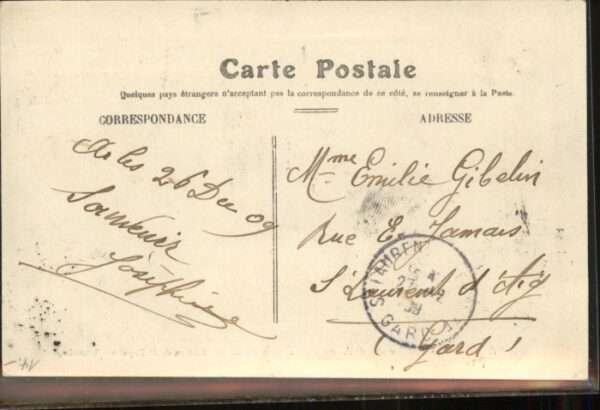 Carte Postale
Quelques pays étrangers n'acceptant pas la correspondance de ce côté, se renseigner à la Poste.
CORRESPONDANCE
ADRESSE
Arles 26 Dec 09
Souvenir
Joséphine
Mme Emilie Gibelin
Rue E. Jamais
St Laurent d'Aig
(Gard)
ST LAUREN
GARD
14